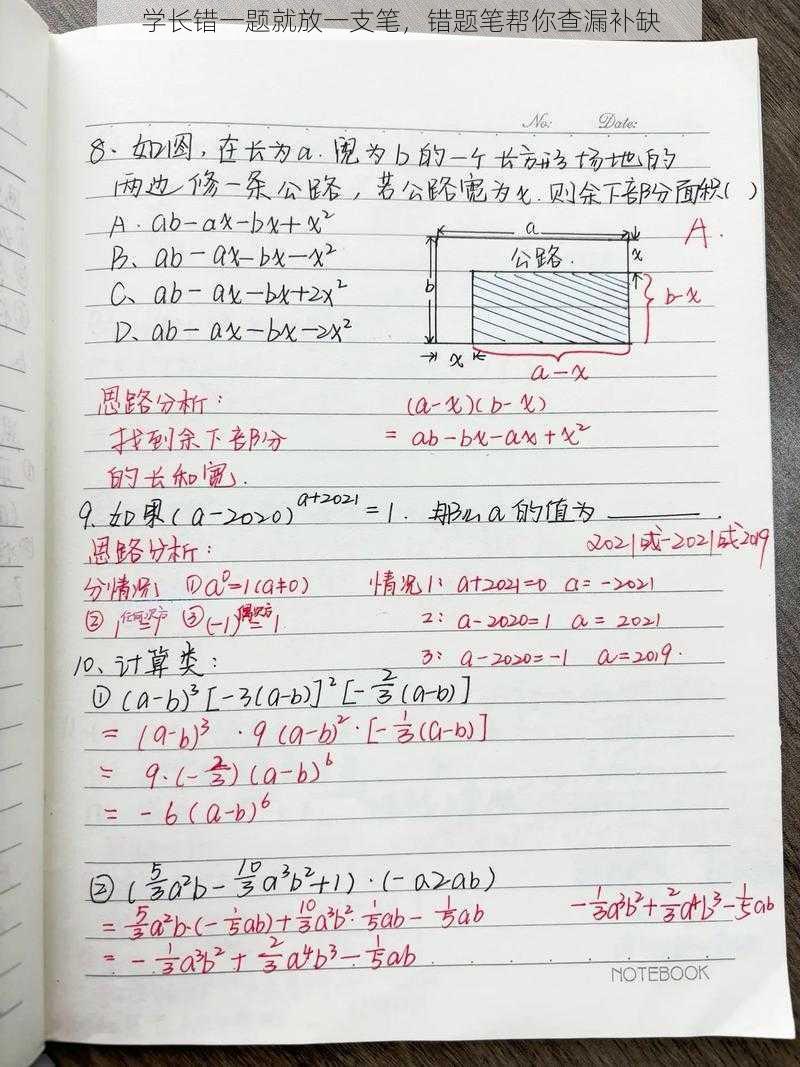 学长错一题就放一支笔，错题笔帮你查漏补缺
No:   Date:
8、如图，在长为a.宽为b的一个长方形场地的
两边修一条公路，若公路宽为x.则余下部分面积( )
A. ab-ax-bx+x²
A.
B、ab-ax-bx-x²
C、ab-ax-bx+2x²
D、ab-ax-bx-2x²
a
公路.
x
b
b-x
x
a-x
思路分析：
(a-x)(b-x)
找到余下部分
= ab-bx-ax+x²
的长和宽.
9、如果(a-2020)^(a+2021)=1. 那么a的值为______.
2021或-2021或2019
思路分析：
分情况： ①a⁰=1(a≠0)  情况1: a+2021=0  a=-2021
②1^任何次方=1 ③(-1)^偶次方=1  2: a-2020=1  a=2021
3: a-2020=-1  a=2019.
10、计算类：
①(a-b)³[-3(a-b)]²[-2/3(a-b)]
= (a-b)³ · 9(a-b)² · [-1/3(a-b)]
= 9·(-2/3)(a-b)⁶
= -6(a-b)⁶
②(5/3a²b-10/3a³b²+1)·(-a2ab)
-1/3a³b²+2/3a⁴b³-1/5ab
= 5/3a²b·(-1/5ab)+10/3a³b²·1/5ab-1/5ab
= -1/3a³b²+2/3a⁴b³-1/5ab
NOTEBOOK